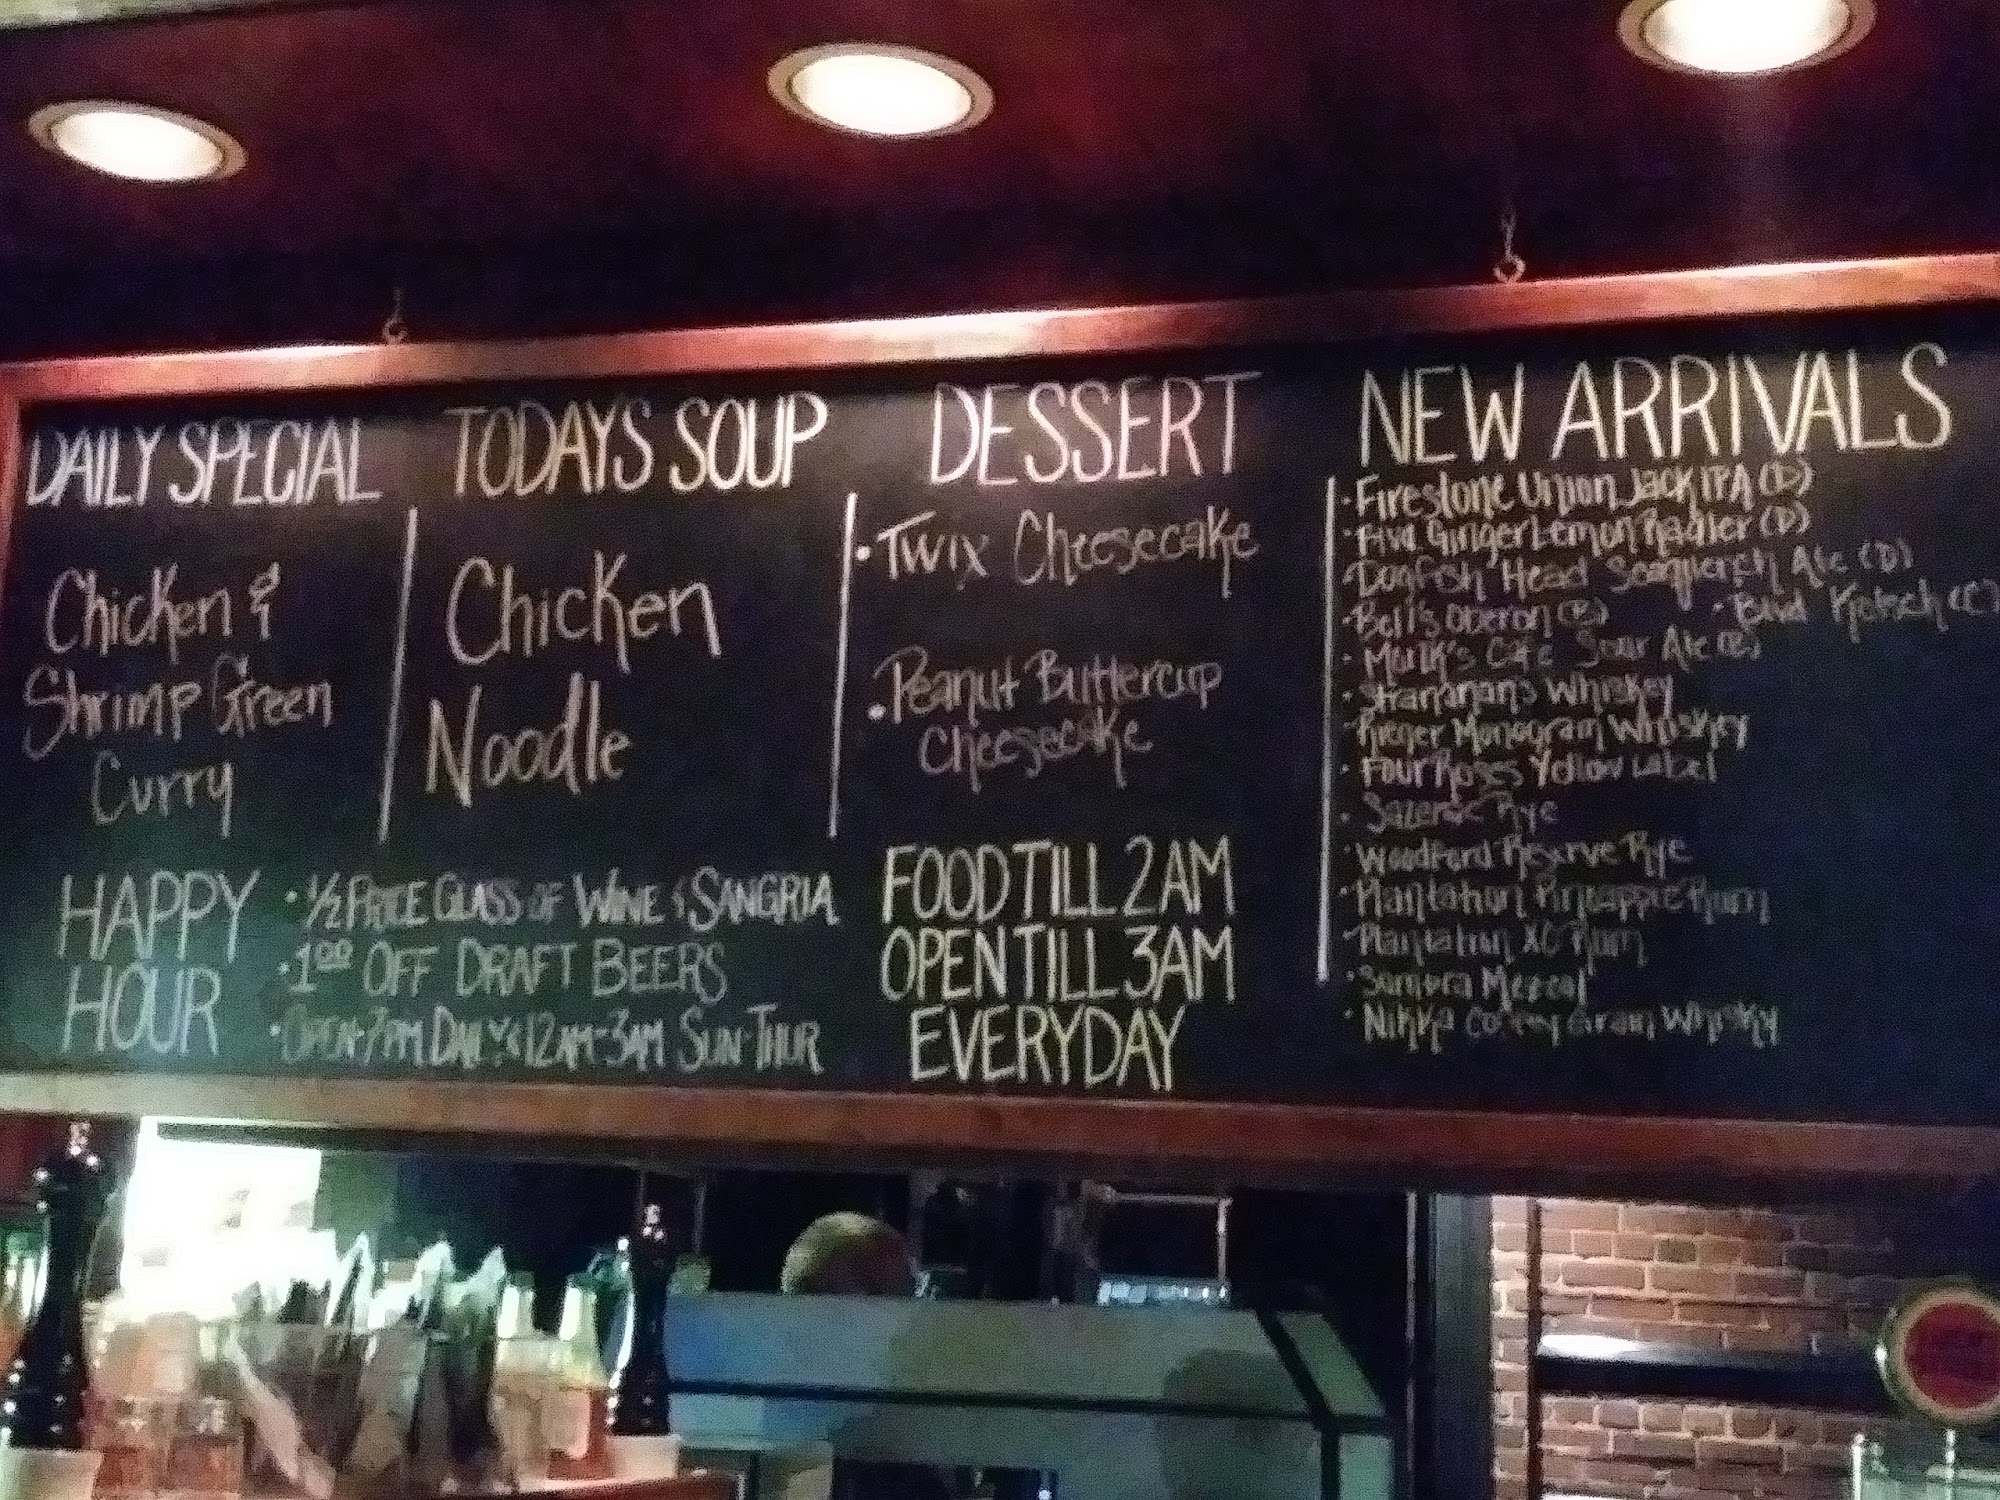 DAILY SPECIAL
Chicken &
Shrimp Green
Curry
TODAY'S SOUP
Chicken
Noodle
DESSERT
• Twix Cheesecake
• Peanut Buttercup
Cheesecake
HAPPY
HOUR
• 1/2 PRICE GLASS OF WINE & SANGRIA
• 1.00 OFF DRAFT BEERS
• OPEN-7PM DAILY & 12AM-3AM SUN-THUR
FOOD TILL 2AM
OPEN TILL 3AM
EVERYDAY
NEW ARRIVALS
• Firestone Union Jack IPA (D)
Ginger Lemon Radler (D)
Dogfish Head Ale (D)
• Bell's Oberon (B) • Kolsch (C)
• Monk's Cafe Sour Ale (B)
• Stranahan's Whiskey
• Monogram Whiskey
• Four Roses Yellow Label
• Sazerac Rye
• Woodford Reserve Rye
• Plantation Pineapple Rum
• Plantation XO Rum
• Mezcal
• Nikka Coffey Grain Whisky